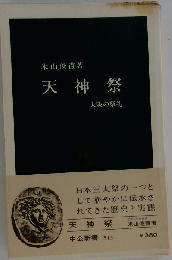 米山俊直著
天神祭
大阪の祭礼
日本三大祭の一つと
して華やかに伝承さ
れてきた歴史と実態
天神祭 米山俊直著
中公新書 541
¥380